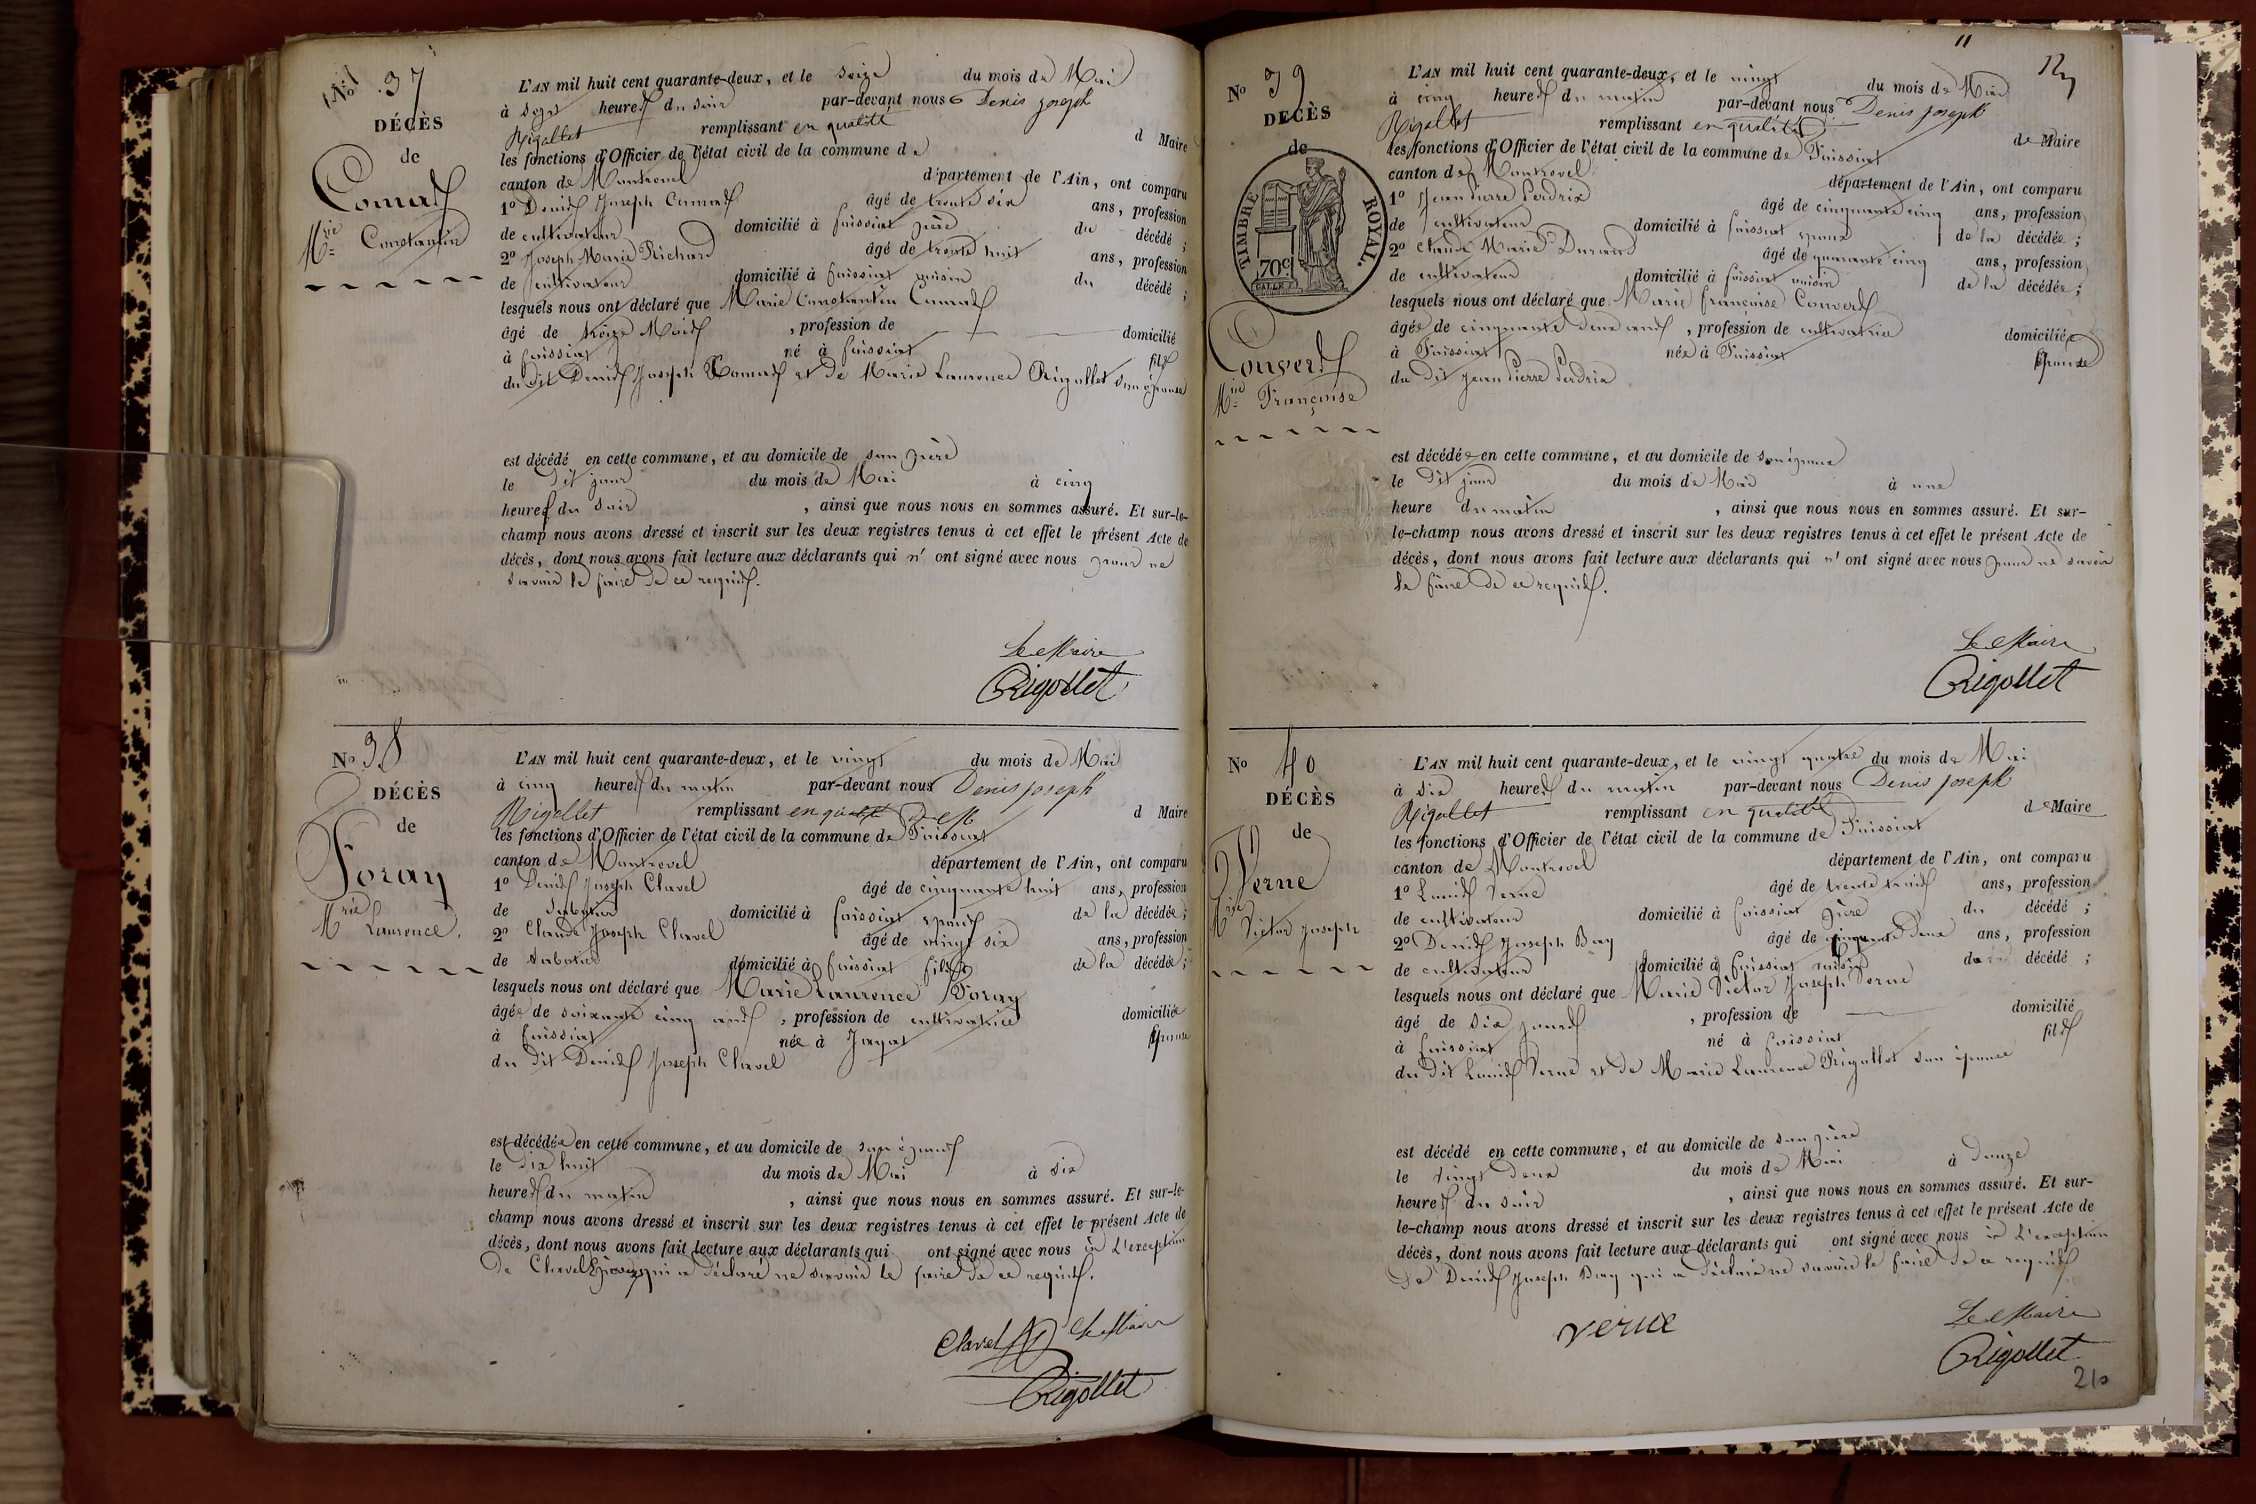 No 37
DÉCÈS
de
Comas
Mrie Constantin
L'AN mil huit cent quarante-deux, et le seize du mois de Mai
à sept heures du soir par-devant nous Denis joseph
Rigollet remplissant en qualité d Maire
les fonctions d'Officier de l'état civil de la commune d
canton de Montrevel département de l'Ain, ont comparu
1º Denis Joseph Comas âgé de trente six ans, profession
de cultivateur domicilié à foissiat père du décédé ;
2º Joseph Marie Richard âgé de trente huit ans, profession
de cultivateur domicilié à foissiat voisin du décédé ;
lesquels nous ont déclaré que Marie Constantin Comas
âgé de treize Mois , profession de domicilié
à foissiat né à foissiat fils
du dit Denis Joseph Comas et de Marie Laurence Rigollet son épouse
est décédé en cette commune, et au domicile de son père
le dit jour du mois de Mai à cinq
heures du soir , ainsi que nous nous en sommes assuré. Et sur-le-
champ nous avons dressé et inscrit sur les deux registres tenus à cet effet le présent Acte de
décès, dont nous avons fait lecture aux déclarants qui n' ont signé avec nous pour ne
savoir le faire de ce requis.
Le Maire
Rigollet
No 38
DÉCÈS
de
Foray
Mrie Laurence.
L'AN mil huit cent quarante-deux, et le vingt du mois de Mai
à cinq heures du matin par-devant nous Denis joseph
Rigollet remplissant en qualité d Maire
les fonctions d'Officier de l'état civil de la commune de Foissiat
canton de Montrevel département de l'Ain, ont comparu
1º Denis Joseph Clavel âgé de cinquante huit ans, profession
de sabotier domicilié à foissiat époux de la décédée ;
2º Claude Joseph Clavel âgé de vingt six ans, profession
de sabotier domicilié à foissiat fils de la décédée ;
lesquels nous ont déclaré que Marie Laurence Foray
âgée de soixante cinq ans , profession de cultivatrice domiciliée
à foissiat née à Jayat épouse
du dit Denis Joseph Clavel
est décédée en cette commune, et au domicile de son époux
le dix huit du mois de Mai à six
heures du matin , ainsi que nous nous en sommes assuré. Et sur-le-
champ nous avons dressé et inscrit sur les deux registres tenus à cet effet le présent Acte de
décès, dont nous avons fait lecture aux déclarants qui ont signé avec nous à l'exception
de Clavel époux qui a déclaré ne savoir le faire de ce requis.
Clavel Le Maire
Rigollet
11
No 39
DÉCÈS
de
TIMBRE ROYAL.
70c
Convers
Mrie Françoise
L'AN mil huit cent quarante-deux, et le vingt du mois de Mai
à cinq heures du matin par-devant nous Denis joseph
Rigollet remplissant en qualité de Maire
les fonctions d'Officier de l'état civil de la commune de Foissiat
canton de Montrevel département de l'Ain, ont comparu
1º Jean Pierre Perdrix âgé de cinquante cinq ans, profession
de cultivateur domicilié à foissiat époux de la décédée ;
2º Claude Marie Durand âgé de quarante cinq ans, profession
de cultivateur domicilié à foissiat voisin de la décédée ;
lesquels nous ont déclaré que Marie françoise Convers
âgée de cinquante deux ans , profession de cultivatrice domiciliée
à Foissiat née à Foissiat épouse
du dit Jean Pierre Perdrix
est décédée en cette commune, et au domicile de son époux
le dit jour du mois de Mai à une
heure du matin , ainsi que nous nous en sommes assuré. Et sur-
le-champ nous avons dressé et inscrit sur les deux registres tenus à cet effet le présent Acte de
décès, dont nous avons fait lecture aux déclarants qui n' ont signé avec nous pour ne savoir
le faire de ce requis.
Le Maire
Rigollet
No 40
DÉCÈS
de
Verne
Mrie Victor Joseph
L'AN mil huit cent quarante-deux, et le vingt quatre du mois de Mai
à six heures du matin par-devant nous Denis joseph
Rigollet remplissant en qualité de Maire
les fonctions d'Officier de l'état civil de la commune de Foissiat
canton de Montrevel département de l'Ain, ont comparu
1º Louis Verne âgé de trente trois ans, profession
de cultivateur domicilié à foissiat père du décédé ;
2º Denis Joseph Bay âgé de cinquante deux ans, profession
de cultivateur domicilié à foissiat voisin du décédé ;
lesquels nous ont déclaré que Marie Victor Joseph Verne
âgé de six jours , profession de domicilié
à foissiat né à foissiat fils
du dit Louis Verne et de Marie Laurence Rigollet son épouse
est décédé en cette commune, et au domicile de son père
le vingt deux du mois de Mai à douze
heures du soir , ainsi que nous nous en sommes assuré. Et sur-
le-champ nous avons dressé et inscrit sur les deux registres tenus à cet effet le présent Acte de
décès, dont nous avons fait lecture aux déclarants qui ont signé avec nous à l'exception
de Denis Joseph Bay qui a déclaré ne savoir le faire de ce requis
verne Le Maire
Rigollet